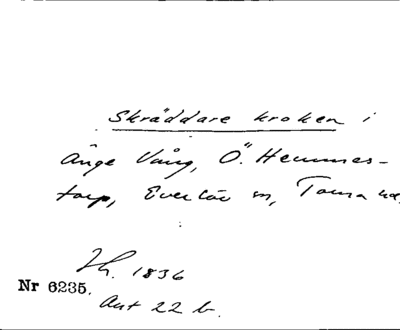 Skräddare kroken i
Änge Vång, Ö. Hemmes-
torp, Everlöv sn, Torna hd,
Jh. 1836
Nr 6235.
Akt 22 b.